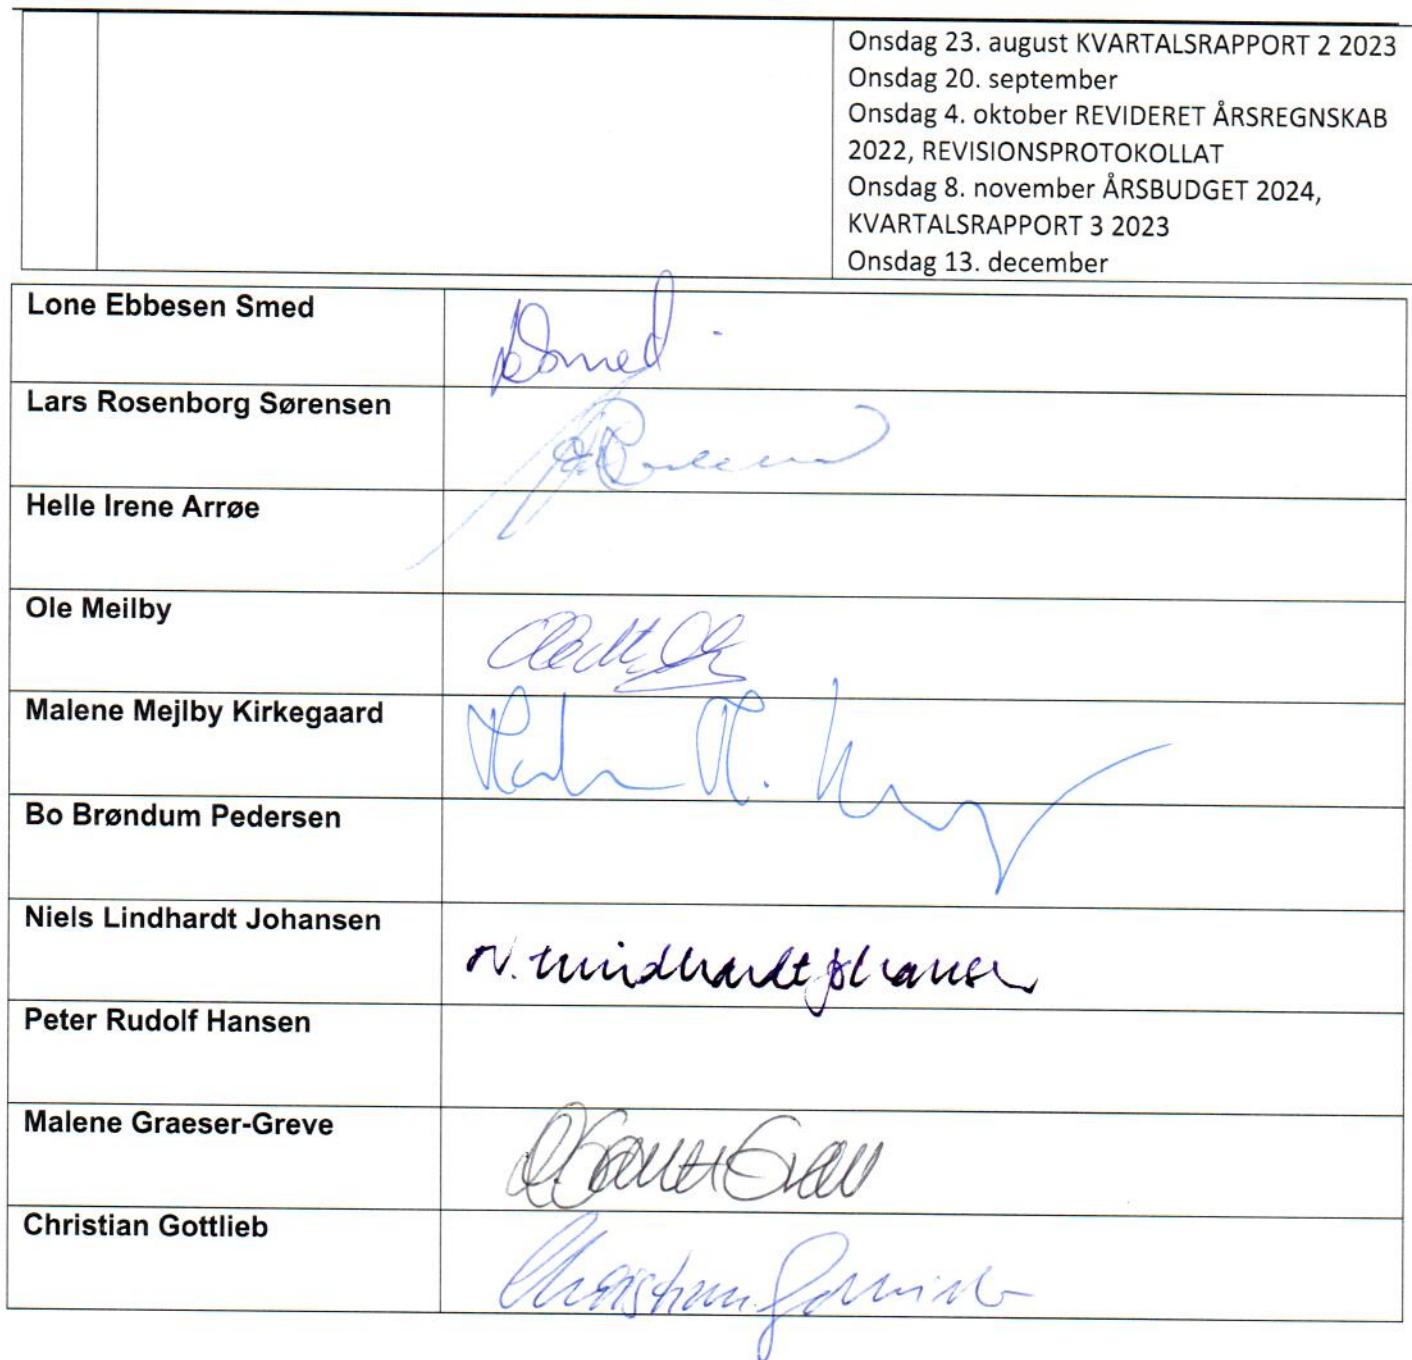 Onsdag 23. august KVARTALSRAPPORT 2 2023
Onsdag 20. september
Onsdag 4. oktober REVIDERET ÅRSREGNSKAB
2022, REVISIONSPROTOKOLLAT
Onsdag 8. november ÅRSBUDGET 2024,
KVARTALSRAPPORT 3 2023
Onsdag 13. december
Lone Ebbesen Smed
Smed
Lars Rosenborg Sørensen
Helle Irene Arrøe
Ole Meilby
Malene Mejlby Kirkegaard
Bo Brøndum Pedersen
Niels Lindhardt Johansen
N. Lindhardt Johansen
Peter Rudolf Hansen
Malene Graeser-Greve
Christian Gottlieb
Christian Gottlieb